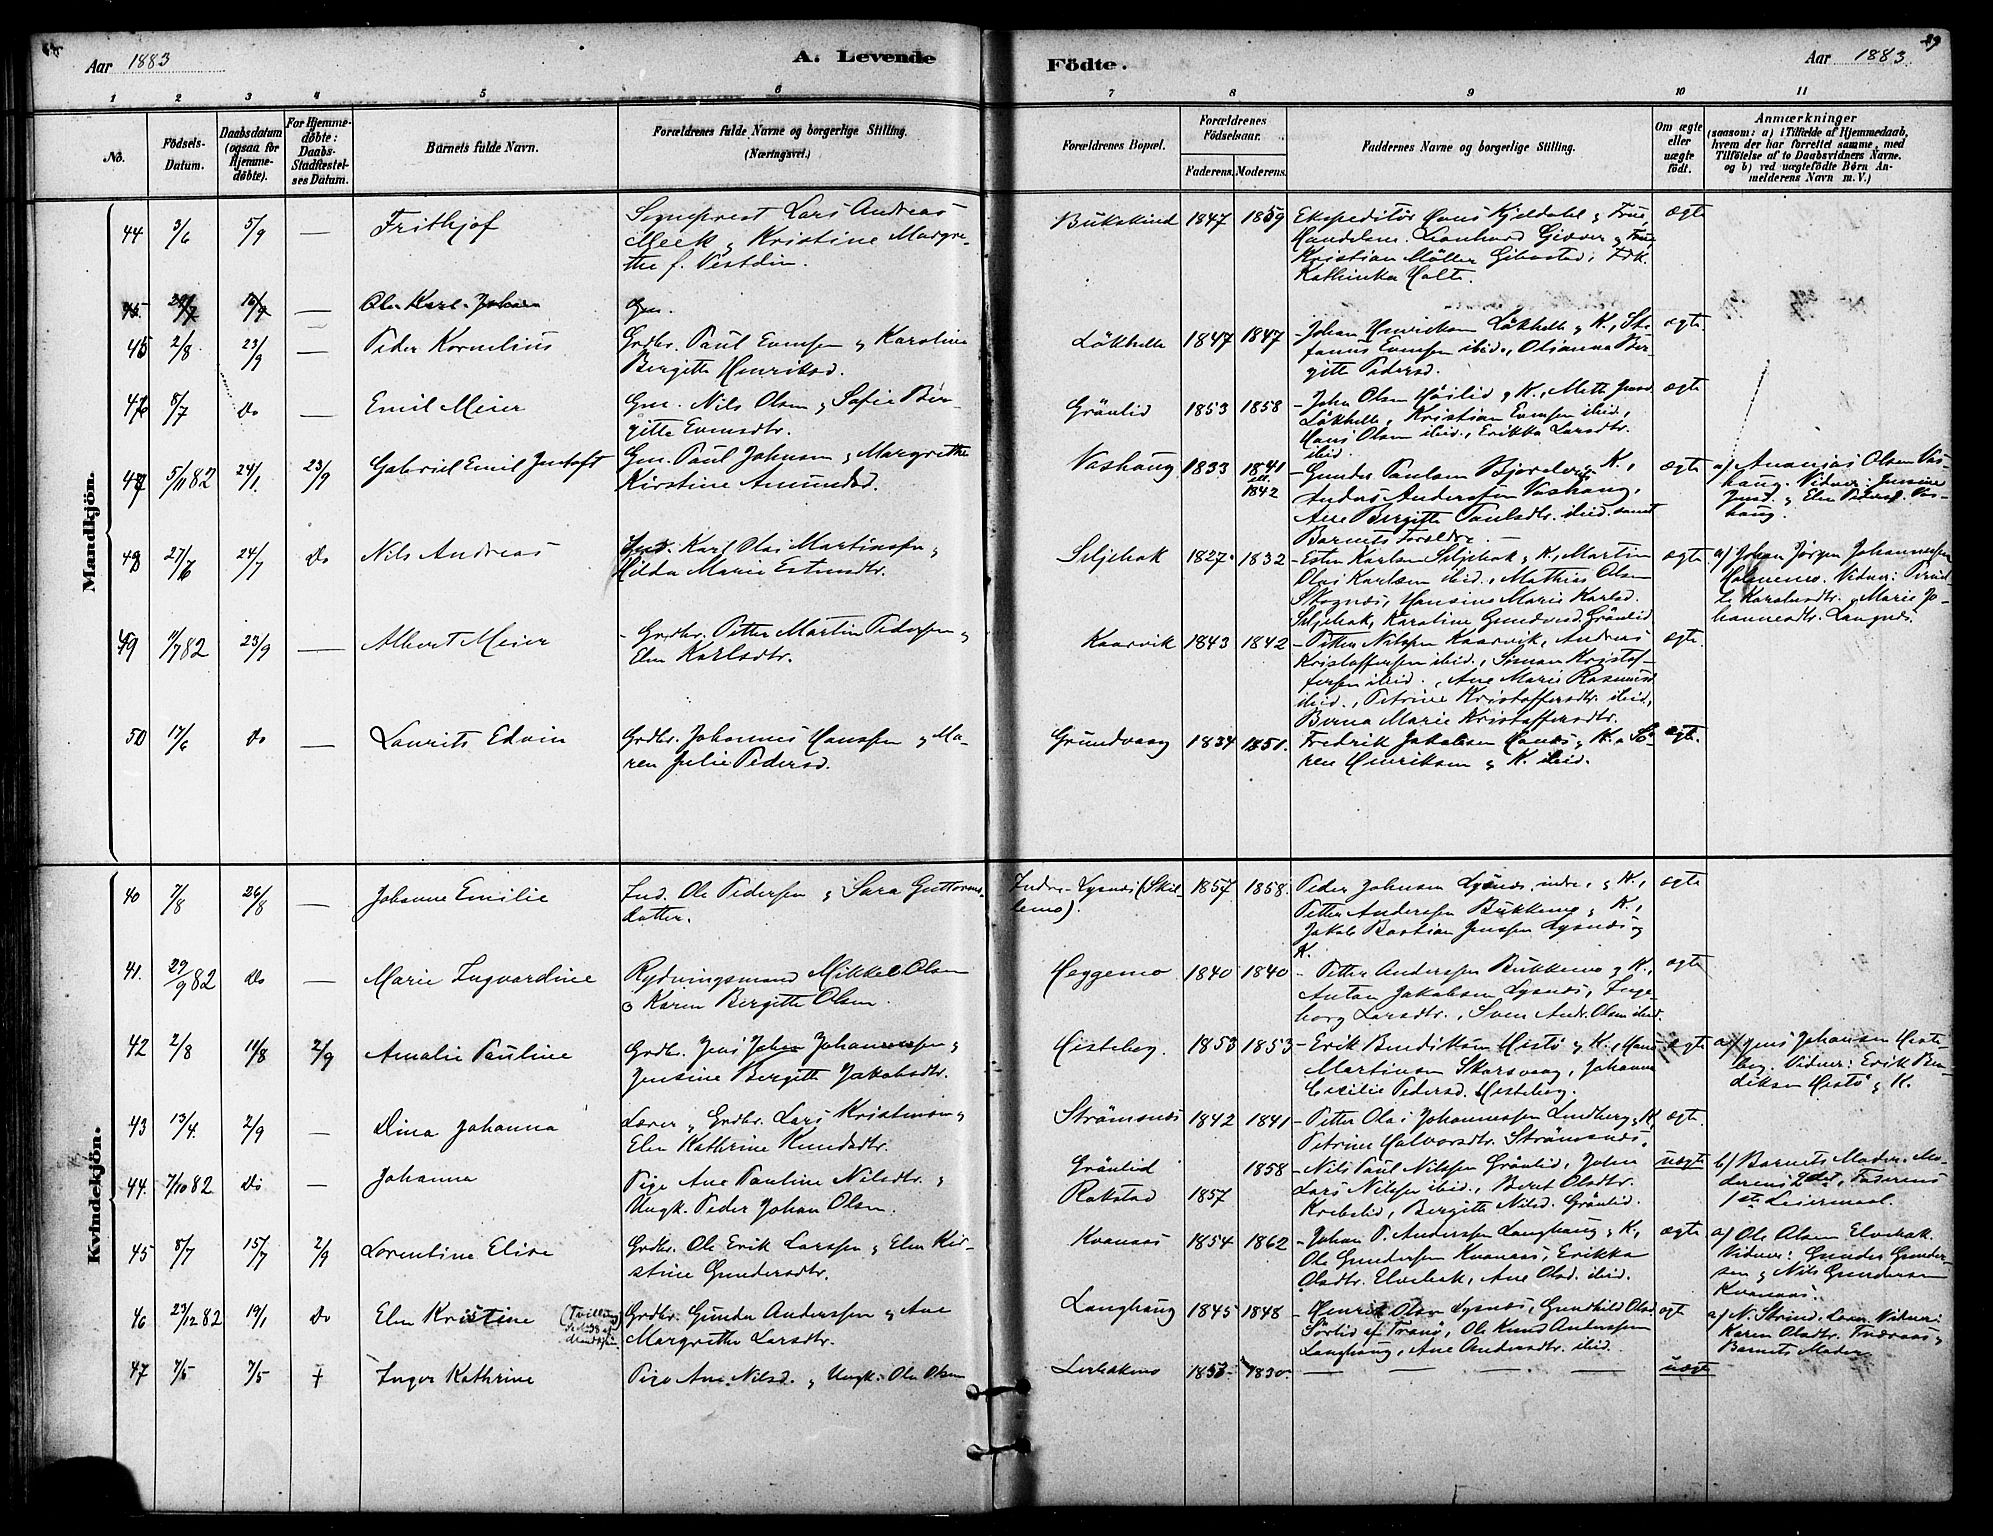 Aar 1883
A. Levende
Födte.
Aar 1883.
89
1 2 3 4 5 6 7 8 9 10 11
No.
Födsels-Datum.
Daabsdatum (ogsaa for Hjemmedøbte).
For Hjemmedøbte: Daabs-Stadfæstelses Datum.
Barnets fulde Navn.
Forældrenes fulde Navne og borgerlige Stilling. (Næringsvei.)
Forældrenes Bopæl.
Forældrenes Födselsaar.
Faderens. Moderens.
Faddernes Navne og borgerlige Stilling.
Om ægte eller uægte født.
Anmærkninger
(saasom: a) i Tilfælde af Hjemmedaab, hvem der har forrettet samme, med Tilføielse af to Daabsvidners Navne. og b) ved uægtefödte Børn Anmelderens Navn m. V.)
Mandkjön.
44 3/6 5/9 — Frithjof
Sogneprest Lars Andreas
Meek & Kristine Margre-
the f. Vestdin.
Bukskind 1847 1859
Ekspeditör Hans Kjeldahl & Frue,
Handelsm. Leonhard Giæver & Frue,
Kristian Möller Gibostad, Frk.
Kathinka Holte.
ægte
45. 24/7 16/9 — Ole Karl Johan Gm.
45 2/8 23/9 — Peder Kornelius
Grdbr. Paul Evensen & Karoline
Bergitte Henriksd.
Lökhelle 1847 1847
- Johan Henriksen Lökhelle & K., Ste-
fanus Evensen ibid., Olianna Ber-
gitte Pedersd.
ægte
46 8/7 Do — Emil Meier
Gm. Nils Olsen & Sofie Ber-
gitte Evensdtr.
Grönlid 1853 1858
- John Olsen Höilid & K., Mette Jensd.
Lökhelle, Kristian Evensen ibid.,
Hans Olsen ibid., Erikka Larsdtr.
ibid.
ægte
47 5/11 82 24/1. 23/9 Gabriel Emil Jentoft
Gm. Paul Johnsen & Margrethe
Kirstine Amundsd.
Vashaug 1833 1841 ell. 1842
- Gunder Paulsen Bjorelv & K.,
Anders Andersen Vashaug,
Ane Bergitte Paulsdtr. ibid. samt
Barnets Foreldre. —
ægte
a/ Ananias Olsen Vas-
haug. Vidner: Jensine
Jensd. & Elen Pedersd. Vas-
haug.
48 27/6 24/7 Do Nils Andreas
Ind. Karl Olai Martinsen &
Hilda Marie Estensdtr.
Seljebak 1827. 1832
- Esten Karlsen Seljebak & K., Martin
Olai Karlsen ibid., Mathias Olsen
Skognæs, Hansine Marie Karlsd.
Seljebak, Karoline Gundersd. Grönlid
ægte
a/ Johan Jörgen Johannessen
Holmemo. Vidner:
Karolusdtr. & Marie Jo-
hannesdtr. Langnes.
49 1/7 82 23/9 — Albert Meier
- Grdbr. Petter Martin Pedersen &
Elen Karlsdtr.
Kaarvik 1843 1842
- Petter Nilsen Kaarvik, Andreas
Kristoffersen ibid., Simon Kristof-
fersen ibid., Ane Marie Rasmusd.
ibid., Petrine Kristoffersdtr. ibid,
Berna Marie Kristoffersdtr.
ægte.
50 17/6 Do — Laurits Edvin
Grdbr. Johannes Hanssen & Ma-
ren Julie Pedersd.
Grundvaag 1834 1851.
Fredrik Jakobsen & K., Sö-
ren Henriksen & K. ibid.
ægte.
Kvindekjön.
40 7/8 26/8 — Johanne Emilie
Ind. Ole Pedersen & Sara Guttorms-
datter.
Indre-Lysnæs (Skil-
lemo). 1857 1858.
Peder Johnsen Lysnæs indre, & K.,
Petter Andersen Bukkemo & K.,
Jakob Bastian Jenssen Lysnæs &
K.
ægte
41. 29/9 82 Do — Marie Ingvardine
Rydningsmand Mikkel Olsen
& Karen Bergitte Olsen.
Heggemo 1840 1840
- Petter Andersen Bukkemo & K.,
Anton Jakobsen Lysnæs, Inge-
borg Larsdtr., Sven Andr. Olsen ibid.
ægte
42 2/8 11/8 2/9 Amalie Pauline
Grdbr. Jens Johan Johannessen &
Jensine Bergitte Jakobsdtr.
Hesteberg. 1853 1853
- Erik Bendiksen Hestö & K., Hans
Martinsen Skarsvaag, Johanna
Cecilie Pedersd. Hesteberg.
ægte
a/ Jens Johansen Heste-
berg. Vidner: Erik Ben-
diksen Hestö & K.
43 13/4. 2/9 — Dina Johanna
Lærer & Grdbr. Lars Kristensen &
Elen Kathrine Knudsdtr.
Strömsnæs 1842 1841
- Petter Olai Johannessen Lundberg & K,
Petrine Halvorsdtr. Strömsnæs.
ægte.
44. 7/10 82 Do — Johanna
Pige Ane Pauline Nilsdtr. &
Ungk. Peder Johan Olsen.
Grönlid 1858
Rokstad 1857
- Nils Paul Nilssen Grönlid, John
Lars Nilssen ibid., Beret Olsdtr.
Krebslid, Bergitte Nilsd. Grönlid.
uægte
b/ Barnets Moder. Mo-
derens 2det, Faderens
1ste Leiermaal.
45 8/7 15/7 2/9 Lorentine Elise
Grdbr. Ole Erik Larssen & Elen Kir-
stine Gundersdtr.
Kvanaas 1854 1862
- Johan P. Andersen Langhaug & K,
Ole Gundersen Kvanaas, Erikka
Olsdtr. Elvebak, Ane Olsd. ibid.
ægte
a/ Ole Olsen Elvebak.
Vidner: Gunder Gunder-
sen & Nils Gundersen
Kvanaas.
46 23/12 82 19/1 Do Elen Kristine (Tvilling
Grdbr. Gunder Anderssen & Ane
Margrethe Larsdtr.
Langhaug 1845 1848
- Henrik Olsen Lysnæs, Gunhild Olsd.
Sörlid af Tranö, Ole Knud Andersen
Langhaug, Ane Andersdtr. ibid.
ægte
a/ N. Strand, Lærer. Vidner:
Karen Olsdtr. &
Barnets Moder
47 7/5 7/5 † Inger Kathrine
Pige Ane Nilsd. & Ungk. Ole Olsen
Leirbakmo 1853. 1830.
— — — —
uægte